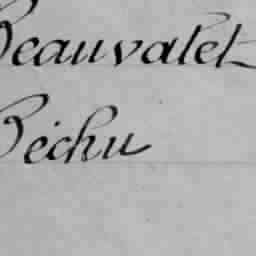 Beauvalet
Béchu